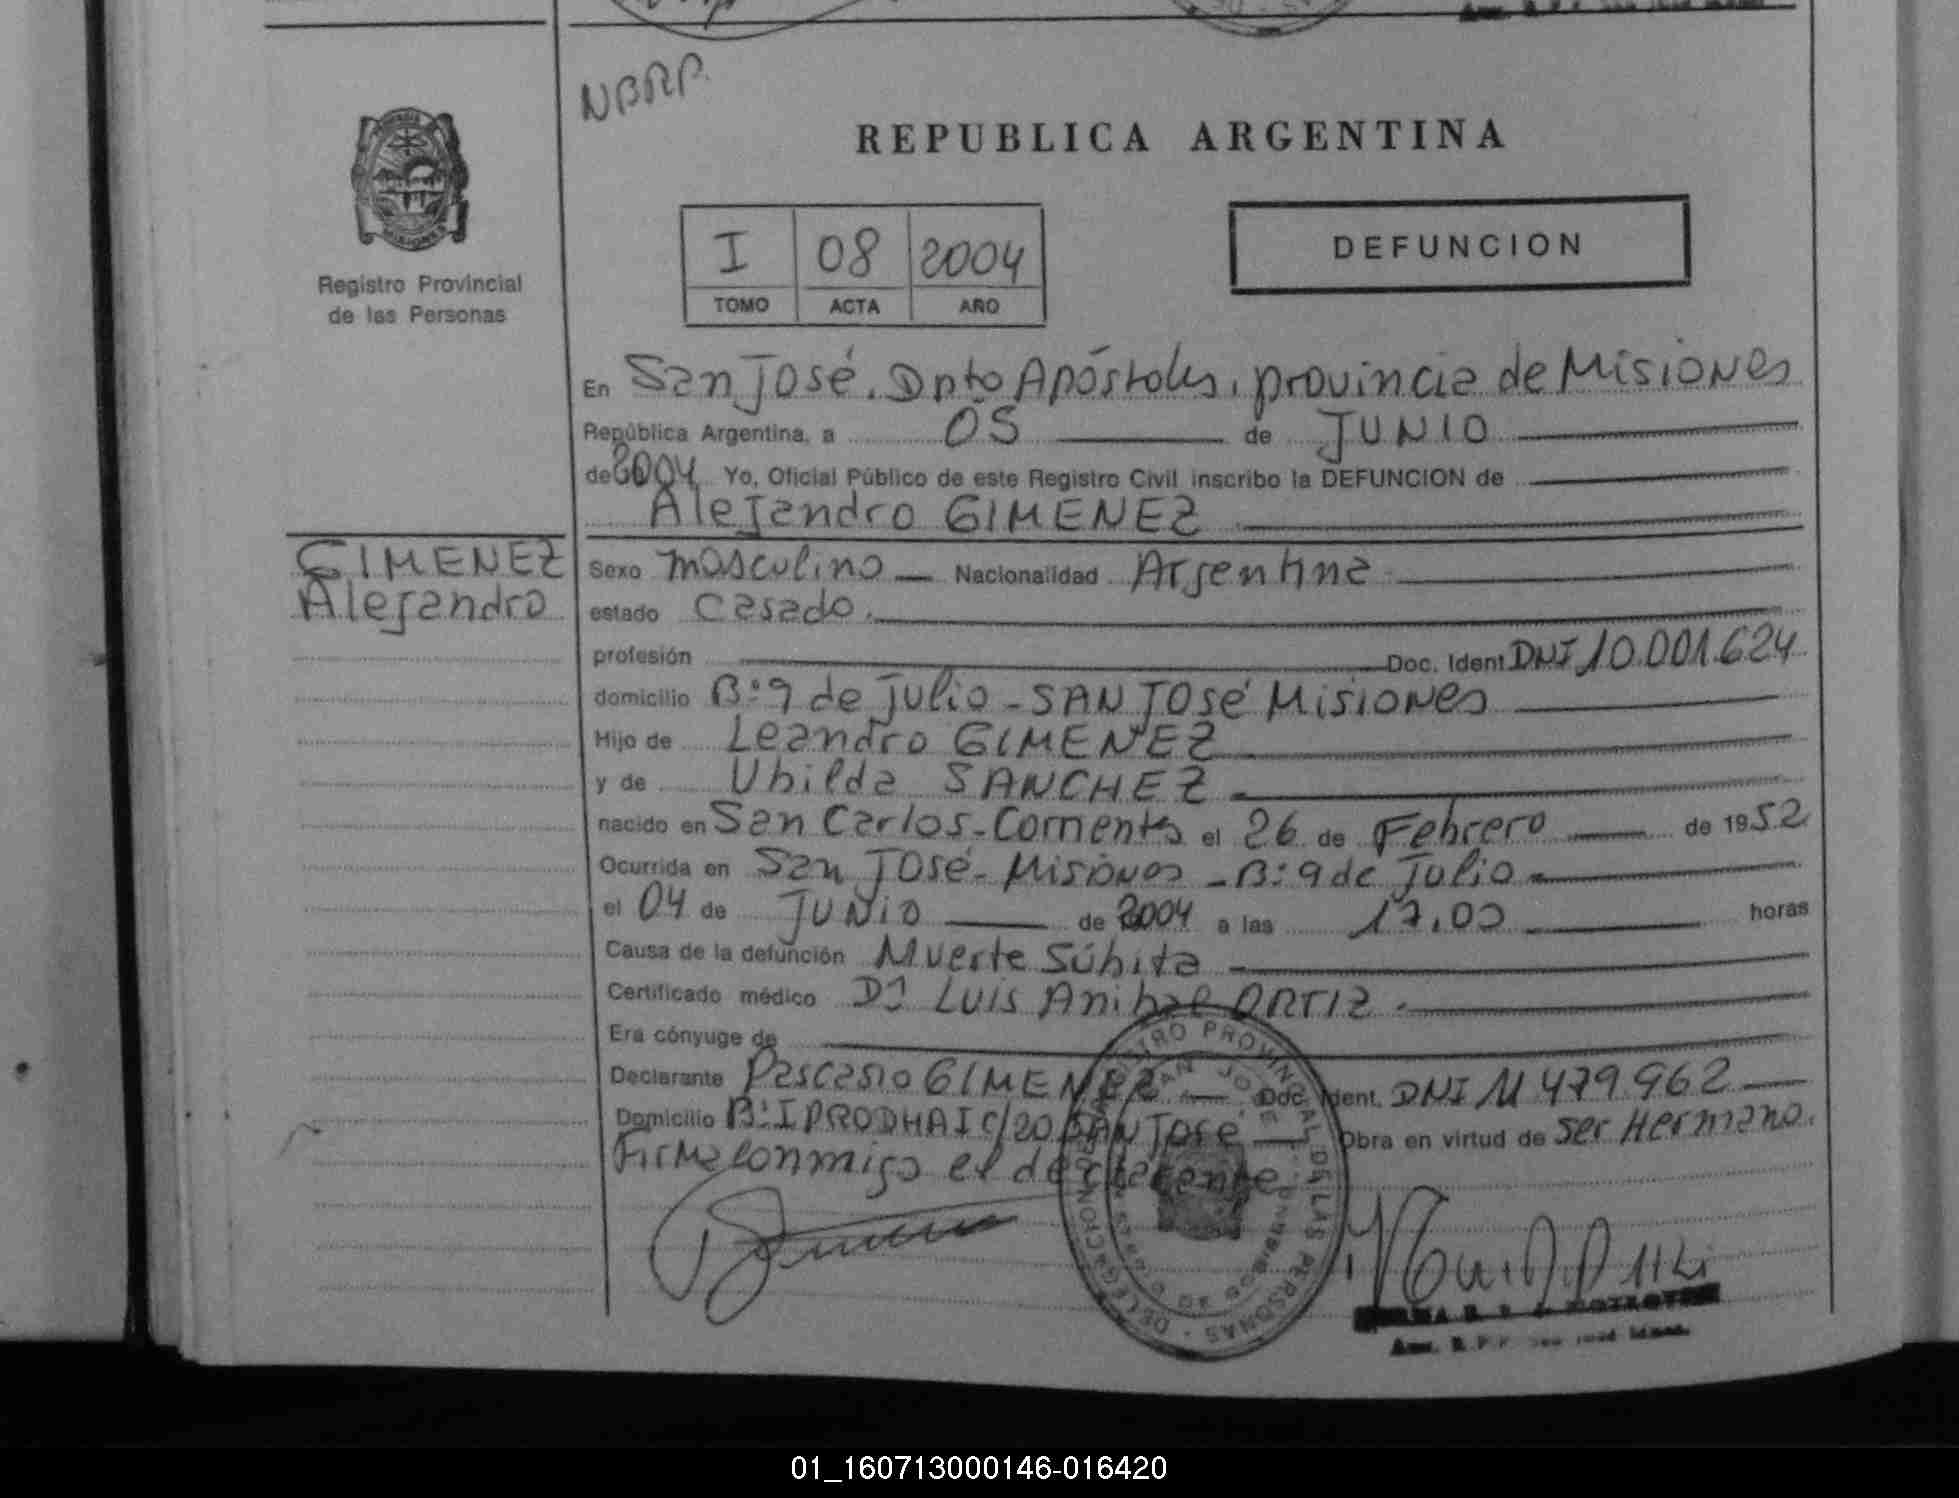 NBRP.
REPUBLICA ARGENTINA
I 08 2004
TOMO ACTA AÑO
DEFUNCION
Registro Provincial
de las Personas
En San José. Dpto Apóstoles, provincia de Misiones
República Argentina, a 05 de JUNIO
de 2004 Yo, Oficial Público de este Registro Civil inscribo la DEFUNCION de
Alejandro GIMENEZ
GIMENEZ
Alejandro
Sexo masculino Nacionalidad Argentina
estado Casado.
profesión Doc. Ident. DNI 10.001.624
domicilio B:9 de Julio - SAN JOSé MISIONES
Hijo de Leandro GIMENEZ
y de Ubilda SANCHEZ
nacido en San Carlos - Corrientes el 26 de Febrero de 1952
Ocurrida en San José - Misiones - B:9 de Julio
el 04 de JUNIO de 2004 a las 17,00 horas
Causa de la defunción Muerte Súbita
Certificado médico Dr Luis Anibal ORTIZ.
Era cónyuge de
Declarante Pascasio GIMENEZ Doc. Ident. DNI 11 479.962
Domicilio B:IPRODHAI C/20 SAN José Obra en virtud de ser Hermano.
Firma conmigo el declarante
REGISTRO PROVINCIAL DE LAS PERSONAS - DELEGACION
SAN JOSE
01_160713000146-016420